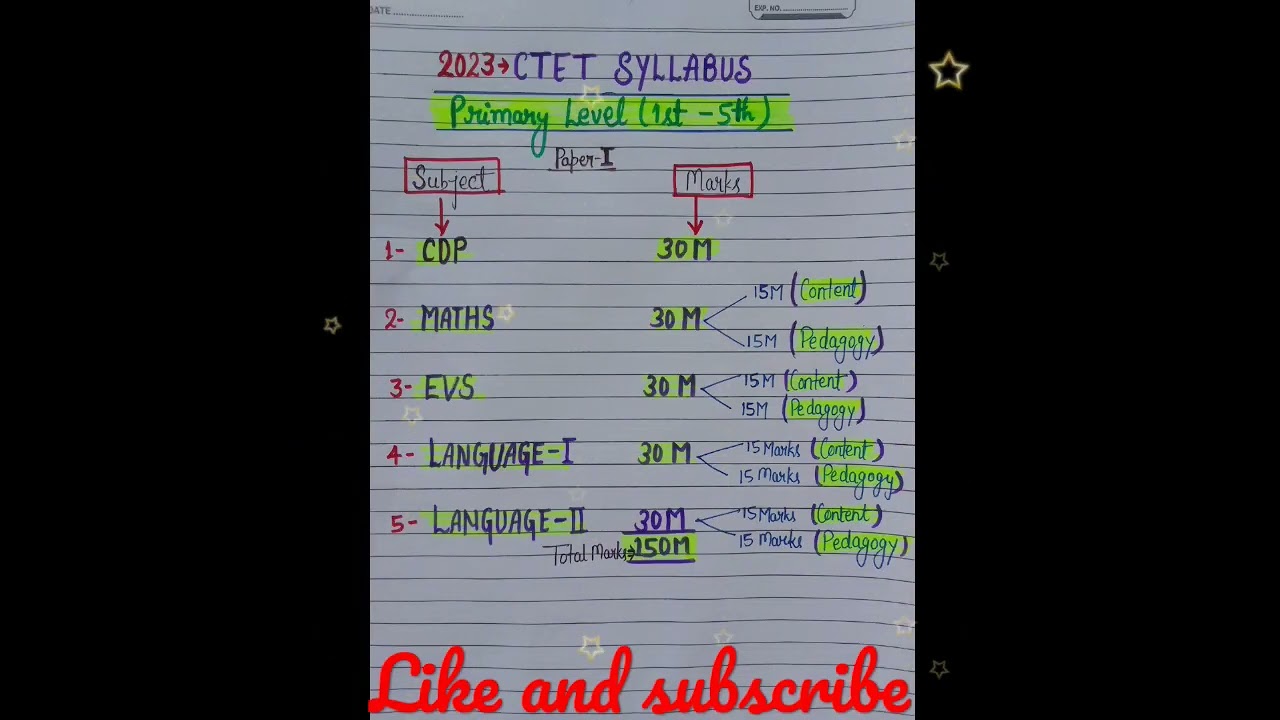 DATE
EXP. NO.
2023→CTET SYLLABUS
Primary Level (1st - 5th)
Paper-I
Subject Marks
1- CDP 30 M
2- MATHS 30 M 15M (Content)
15M (Pedagogy)
3- EVS 30 M 15M (Content)
15M (Pedagogy)
4- LANGUAGE-I 30 M 15 Marks (Content)
15 Marks (Pedagogy)
5- LANGUAGE-II 30M 15 Marks (Content)
15 Marks (Pedagogy)
Total Marks→150M
Like and subscribe